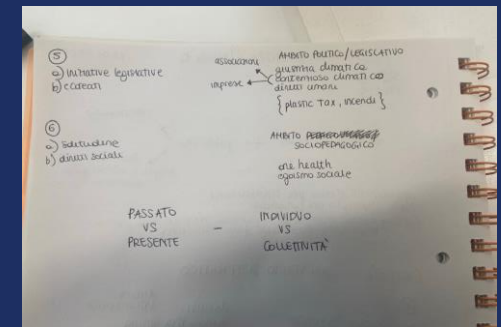 5
a) iniziative legislative
b) ecoreati
associazioni
imprese
AMBITO POLITICO/LEGISLATIVO
giustizia climatica
contenzioso climatico
diritti umani
{plastic tax, incendi}
6
a) solitudine
b) diritti sociali
AMBITO
SOCIOPEDAGOGICO
one health
egoismo sociale
PASSATO
VS
PRESENTE
-
INDIVIDUO
VS
COLLETTIVITÀ